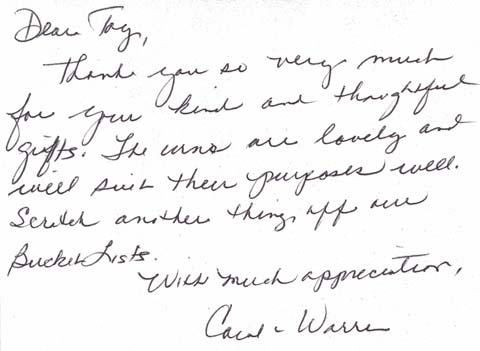 Dear Tay,
Thank you so very much
for you kind and thoughtful
gifts. The urns are lovely and
will suit their purposes well.
Scratch another thing off our
Bucket Lists.
With much appreciation,
Carol - Warren